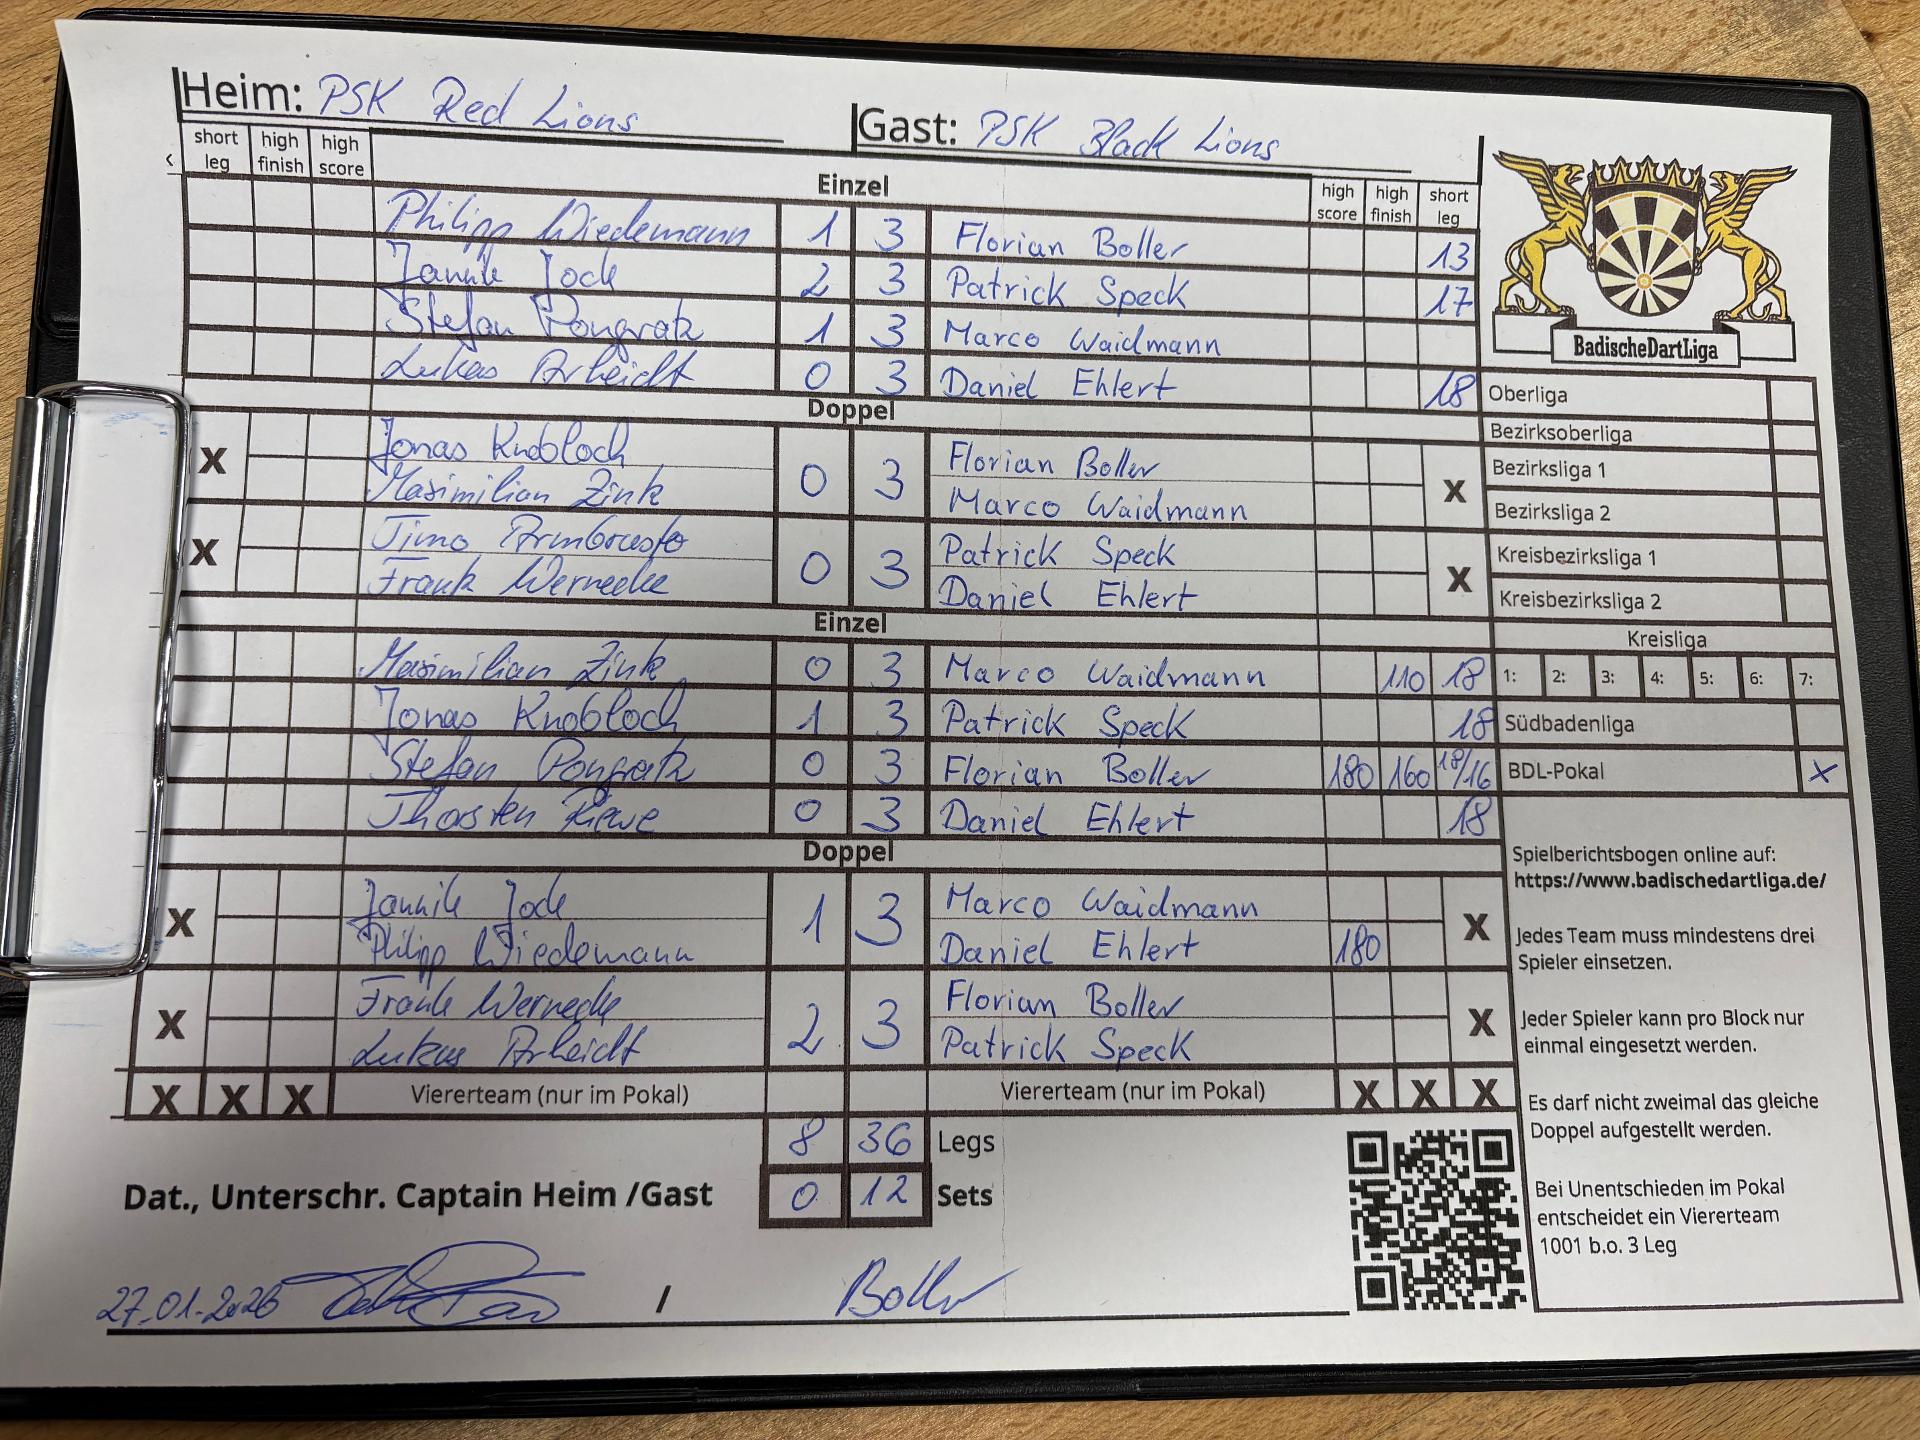 Heim: PSK Red Lions
Gast: PSK Black Lions
short leg high finish high score
Einzel
high score high finish short leg
Philipp Wiedemann 1 3 Florian Boller 13
Jannik Jock 2 3 Patrick Speck 17
Stefan Pongratz 1 3 Marco Waidmann
Lukas Arheidt 0 3 Daniel Ehlert 18
Doppel
X Jonas Knobloch 0 3 Florian Boller X
Maximilian Zink Marco Waidmann
X Timo 0 3 Patrick Speck X
Frank Wernecke Daniel Ehlert
Einzel
Maximilian Zink 0 3 Marco Waidmann 110 18
Jonas Knobloch 1 3 Patrick Speck 18
Stefan Pongratz 0 3 Florian Boller 180 160 18/16
Thorsten 0 3 Daniel Ehlert 18
Doppel
X Jannik Jock 1 3 Marco Waidmann X
Philipp Wiedemann Daniel Ehlert 180
X Frank Wernecke 2 3 Florian Boller X
Lukas Arheidt Patrick Speck
X X X Viererteam (nur im Pokal) Viererteam (nur im Pokal) X X X
8 36 Legs
Dat., Unterschr. Captain Heim /Gast 0 12 Sets
27.01.2026 / Boller
BadischeDartLiga
Oberliga
Bezirksoberliga
Bezirksliga 1
Bezirksliga 2
Kreisbezirksliga 1
Kreisbezirksliga 2
Kreisliga
1: 2: 3: 4: 5: 6: 7:
Südbadenliga
BDL-Pokal X
Spielberichtsbogen online auf:
https://www.badischedartliga.de/
Jedes Team muss mindestens drei
Spieler einsetzen.
Jeder Spieler kann pro Block nur
einmal eingesetzt werden.
Es darf nicht zweimal das gleiche
Doppel aufgestellt werden.
Bei Unentschieden im Pokal
entscheidet ein Viererteam
1001 b.o. 3 Leg